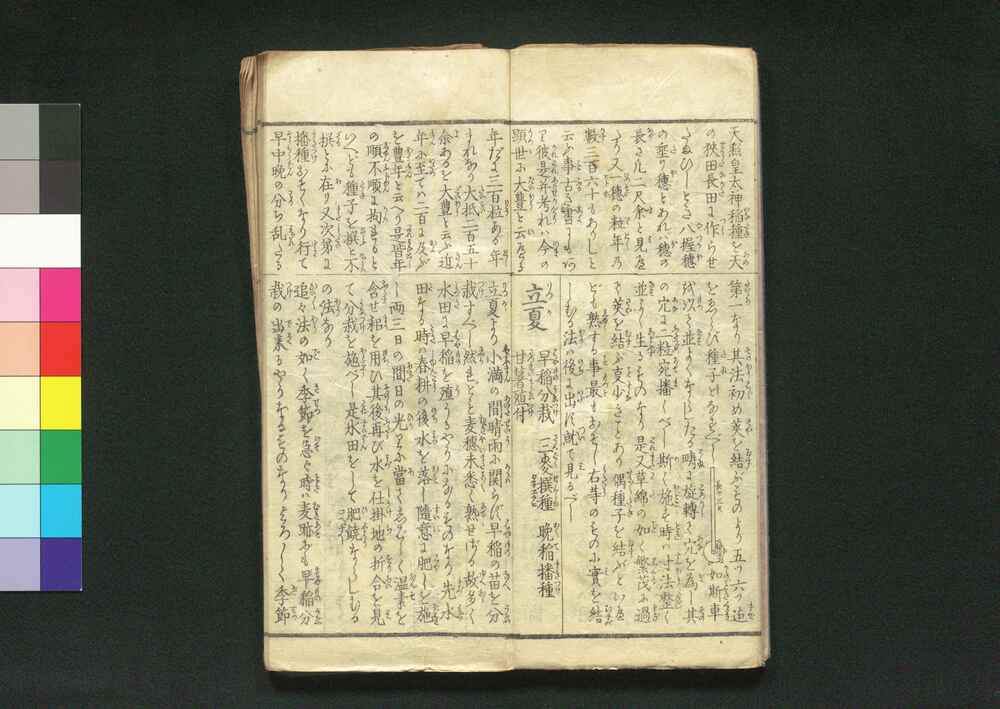 天照皇太神稲種を天
の狭田長田に作らせ
たまひしとき八握穂
の垂り穂とあれバ穂の
長さ凡一尺余と見え
たり又一穂の粒年乃
数三百六十もありしと
云ふ事古き書にも
り彼是并考れハ今の
顕世ふ大豊と云ふなる
年だに三百粒ある年
うれあり大抵二百五十
余あるを大豊と云ふ近
年ふ至てハ二百に及ぶ
を豊年と云へり是皆年
の順不順に拘るもと
いへども種子を撰と不
撰とふ在り又次第に
播種おそくなり行て
早中晩の分ち乱たる
第一なり其法初め莢を結ぶものより五ツ六ツ迄
をゑらび種子とするべし 如斯車
を以て並よくならしたる畴に旋轉し穴を為し其
の穴に二粒宛播くべし斯く施す時ハ寸法整く
並よく生るものなり是又草綿の如く繁茂ふ過
て莢を結ぶ事少きことあり偶種子を結バといへ
ども熟する事最もおそし右等のものふ實を結
しむる法の後に出に就て見るべし
立夏 早稲分栽 三麥撰種 晩稲播種
甘藷植付
立夏より小満の間晴雨ふ関らず早稲の苗を分
栽すべし然れとも麦穂未悉く熟せざる故多く
水田に早稲を殖うるやうふあるものなり先水
田なる時ハ春耕の後水を落し隨意に肥しを施
し両三日の間日の光りふ當てさしおくべし温素を
含せ耜を用ひ其後再び水を仕掛地の折合を見
て分栽を施べし是水田をして肥饒ならしむる
の法なり
追々法の如く季節を急ぐ時ハ麦跡ふも早稲分
栽の出来るやうなるものなりよろしく季節